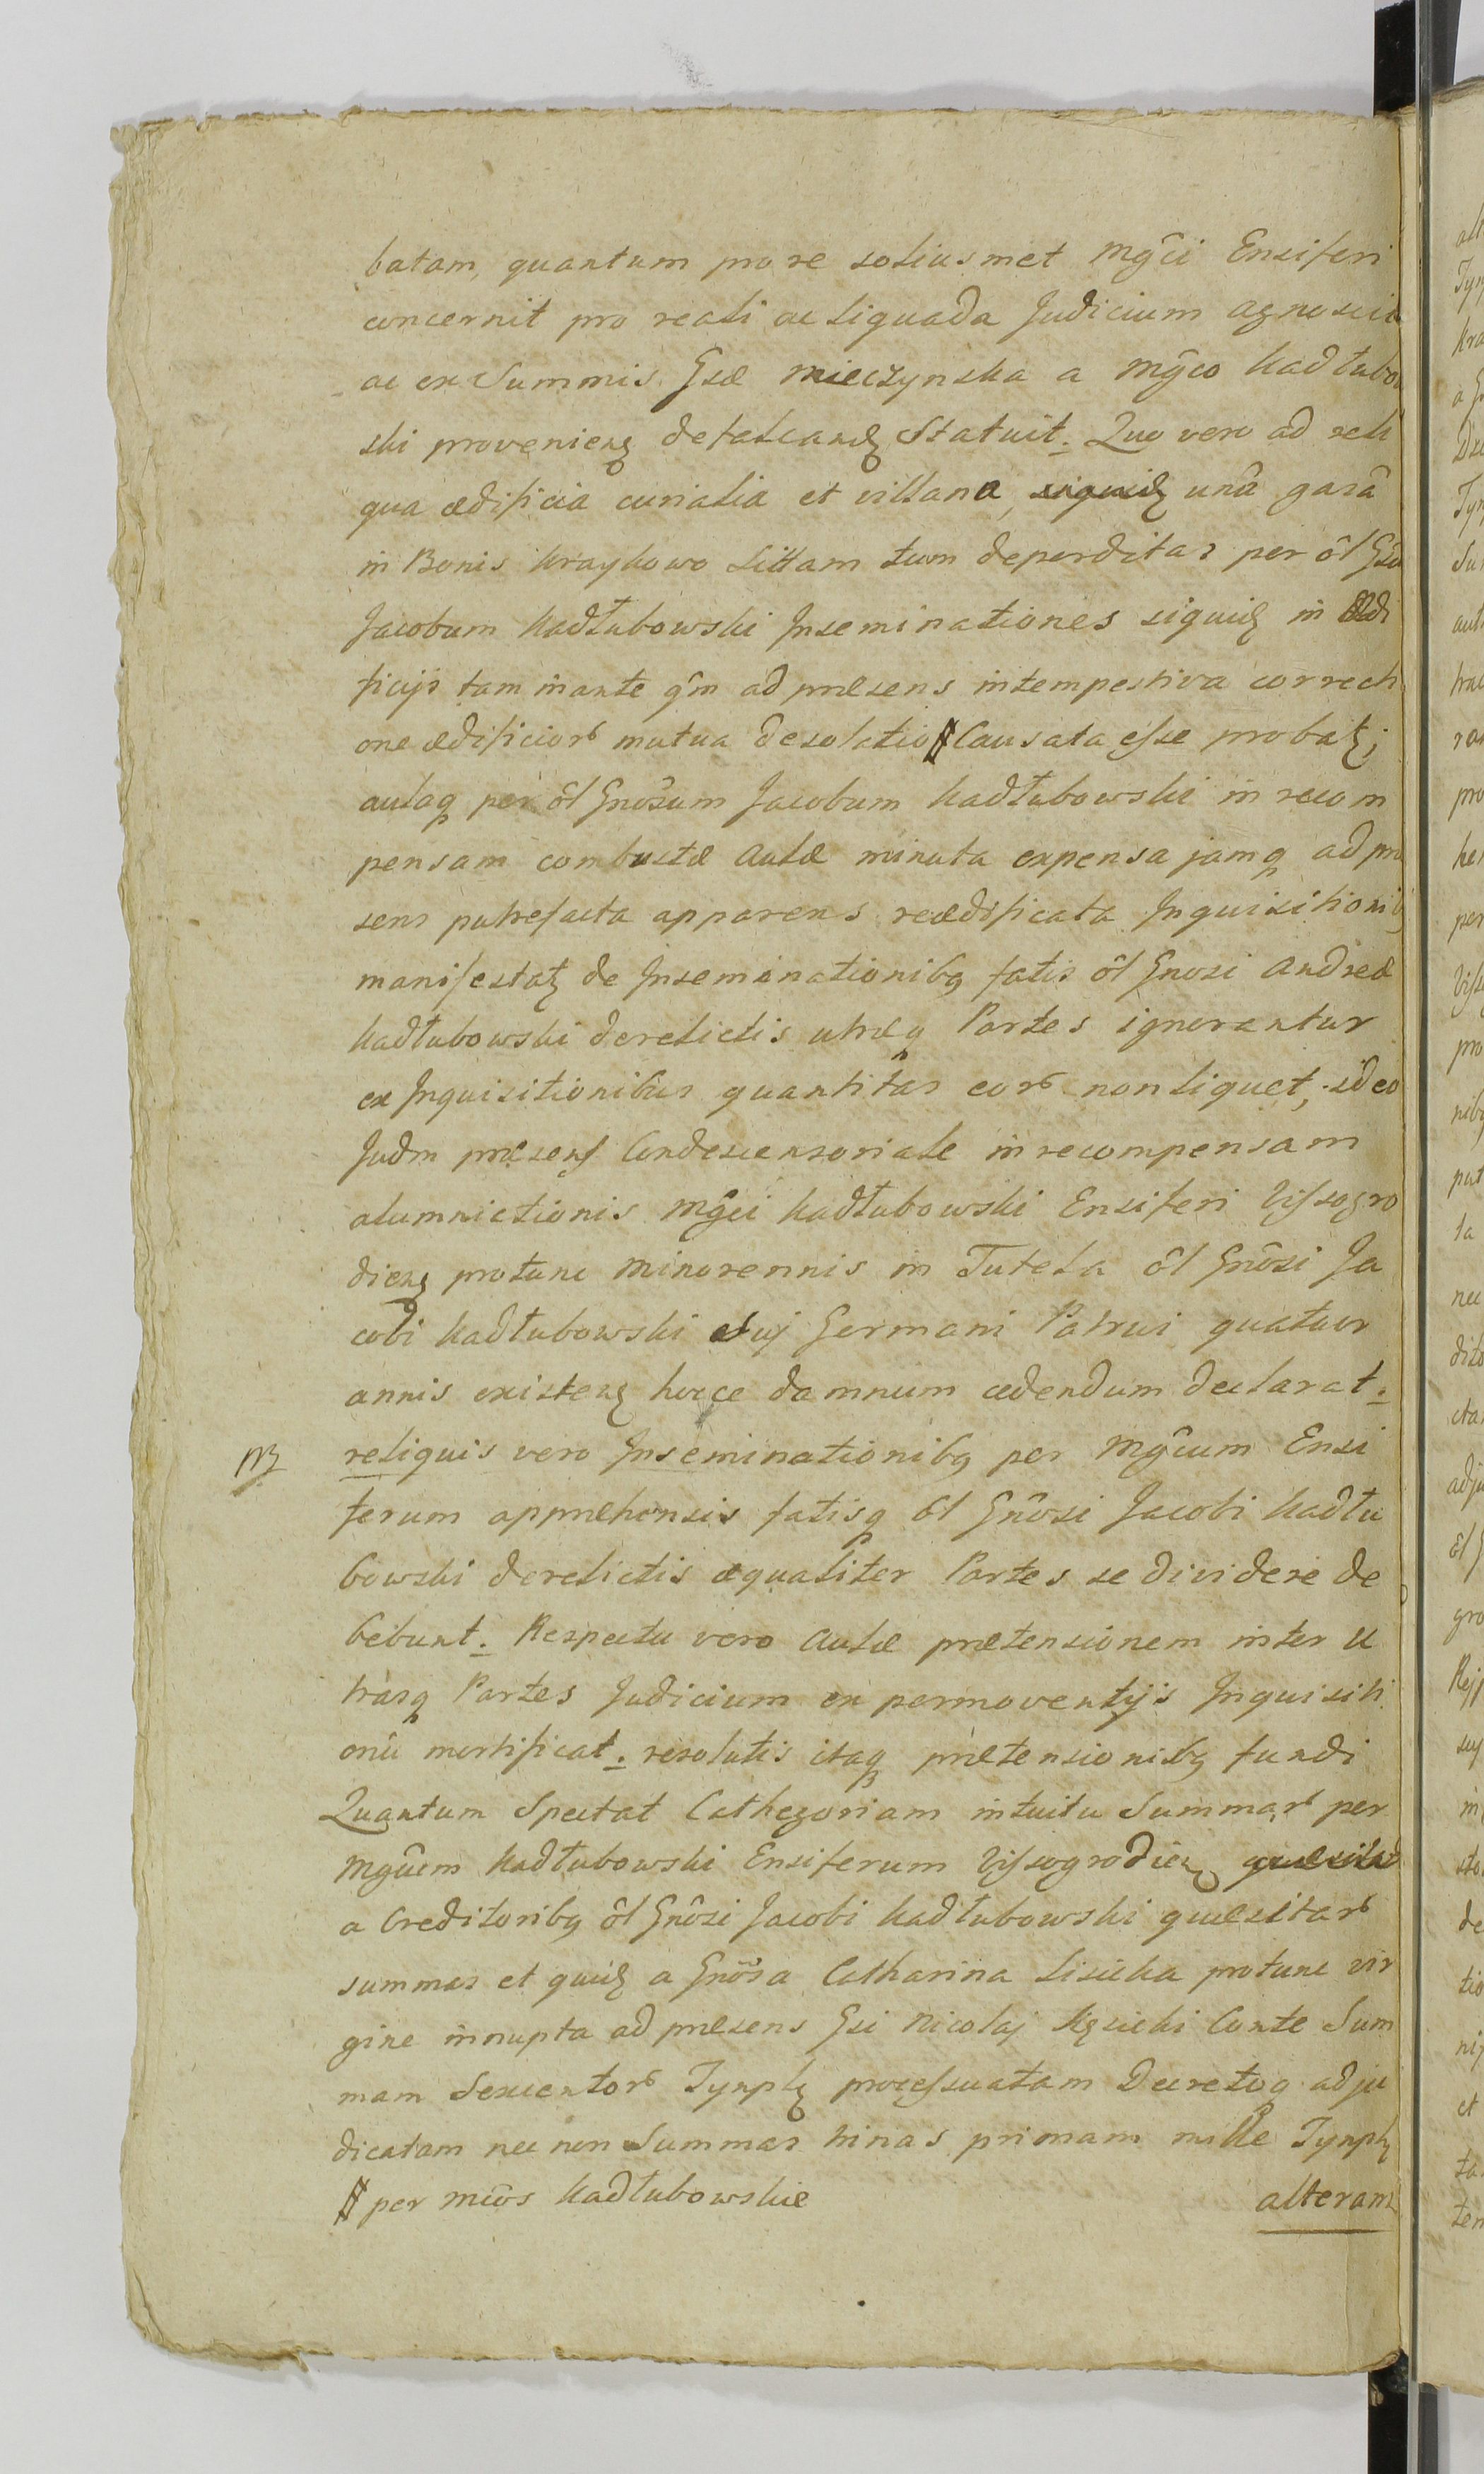 batam, quantum pro re soliusmet Mgci Ensiferi
concernit pro reali ac liquada Judicium agnoscit
ac ex Summis Gsæ Mieczynska a Mgco Kadłubo
ski provenienꝫ defalcandꝫ Statuit. Quo vero ad reli
qua ædificia curialia et villana, siquidꝫ unâ garâ
in Bonis Kraykowo sittam tum deperditas per ôl Gsu
Jacobum Kadłubowski Inseminationes siquidꝫ in Ædi
ficijs tam inante qm ad præsens intempestiva correcti
one ædificiorꝫ mutua desolatio # Causata esse probatꝫ;
aulaqꝫ per ôl Gnosum Jacobum Kadłubowski in recom
pensam combustæ aulæ minuta expensa jamqꝫ ad præ
sens putrefacta apparens reædificata Inquisitionibꝫ
manifestatꝫ de Inseminationibꝫ fatis ôl Gnosi Andreæ
Kadłubowski derelictis utræqꝫ Partes ignorantur
ex Inquisitionibus quantitas eorꝫ non liquet, ideo
Judm præsens Condescensoriale in recompensam
alumnictionis Mgci Kadłubowski Ensiferi Vissogro
dienꝫ protunc minorennis in Tutela ôl Gnôsi Ja
cobi Kadłubowski suj Germani Patrui quatuor
annis existenꝫ hocce damnum cedendum declarat.
reliquis vero Inseminationibꝫ per Mgcum Ensi
ferum appræhensis fatisqꝫ ôl Gnôsi Jacobi Kadłu
bowski derelictis æqualiter Partes se dividere de
bebunt. Respectu vero Aulæ prætensionem inter u
trasqꝫ Partes Judicium ex permoventijs Inquisiti
onû mortificat. resolutis itaqꝫ prætensionibꝫ fundi
Quantum Spectat Cathegoriam intuitu Summarꝫ per
Mgcum Kadłubowski Ensiferum Vissogrodienꝫ
a Creditoribꝫ ôl Gnôsi Jacobi Kadłubowski quæsitarꝫ
summas et quidꝫ a Gnôsa Catharina Lisicka protunc vir
gine innupta ad præsens Gsi Nicolaj Conte Sum
mam Sexcentorꝫ Tynphꝫ processuatam Decretoqꝫ adju
dicatam nec non Summas binas primam mille Tynphꝫ
# per mios Kadłubowskie alteram